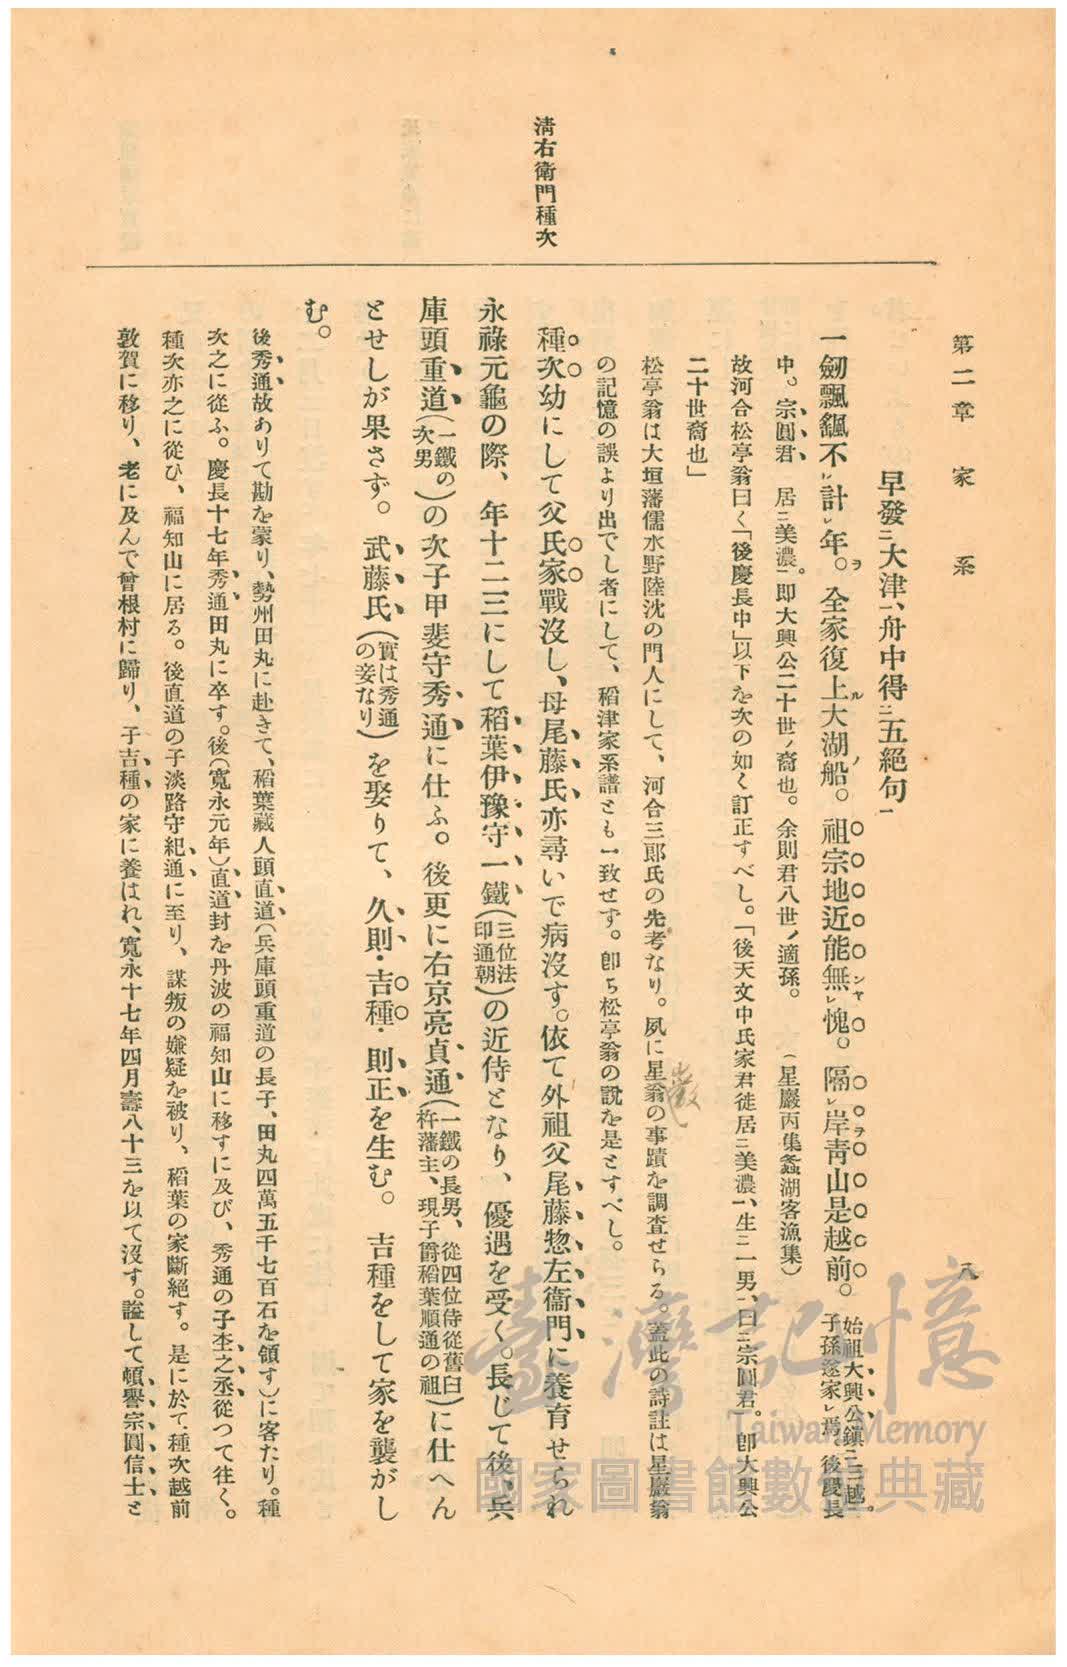 第二章 家系
八
早發二大津一、舟中得二五絕句一
一劒飄飄不レ計レ年。全家復上大湖船。祖宗地近能無レ愧。隔レ岸靑山是越前。始祖大興公鎮二三越一。子孫遂家レ焉。後慶長
中。宗圓君 居二美濃一。即大興公二十世ノ裔也。余則君八世ノ適孫。 (星巖丙集蠡湖客漁集)
故河合松亭翁曰く「後慶長中」以下を次の如く訂正すべし。「後天文中氏家君徒居二美濃一、生二一男一、曰二宗圓君一。卽大興公
二十世裔也」
松亭翁は大垣藩儒水野陸沈の門人にして、河合三郞氏の先考なり。夙に星翁の事蹟を調査せらる。蓋此の詩註は星巖翁
巖
の記憶の誤より出でし者にして、稻津家系譜とも一致せず。卽ち松亭翁の說を是とすべし。
清右衛門種次
種次幼にして父氏家戰沒し、母尾藤氏亦尋いで病沒す。依て外祖父尾藤惣左衞門に養育せられ
永祿元龜の際、年十二三にして稻葉伊豫守一鐵(三位法印通朝)の近侍となり、優遇を受く。長じて後、兵
庫頭重道(一鐵の次男)の次子甲斐守秀通に仕ふ。後更に右京亮貞通(一鐵の長男、從四位侍從舊臼杵藩主、現子爵稻葉順通の祖)に仕へん
とせしが果さず。武藤氏(實は秀通の妾なり)を娶りて、久則・吉種・則正を生む。吉種をして家を襲がし
む。
後秀通故ありて勘を蒙り、勢州田丸に赴きて、稻葉藏人頭直道(兵庫頭重道の長子、田丸四萬五千七百石を領す)に客たり。種
次之に從ふ。慶長十七年秀通田丸に卒す。後(寬永元年)直道封を丹波の福知山に移すに及び、秀通の子杢之丞從つて往く。
種次亦之に從ひ、福知山に居る。後直道の子淡路守紀通に至り、謀叛の嫌疑を被り、稻葉の家斷絕す。是に於て種次越前
敦賀に移り、老に及んで曾根村に歸り、子吉種の家に養はれ、寬永十七年四月壽八十三を以て沒す。諡して頓譽宗圓信士と
臺灣記憶
Taiwan Memory
國家圖書館數位典藏